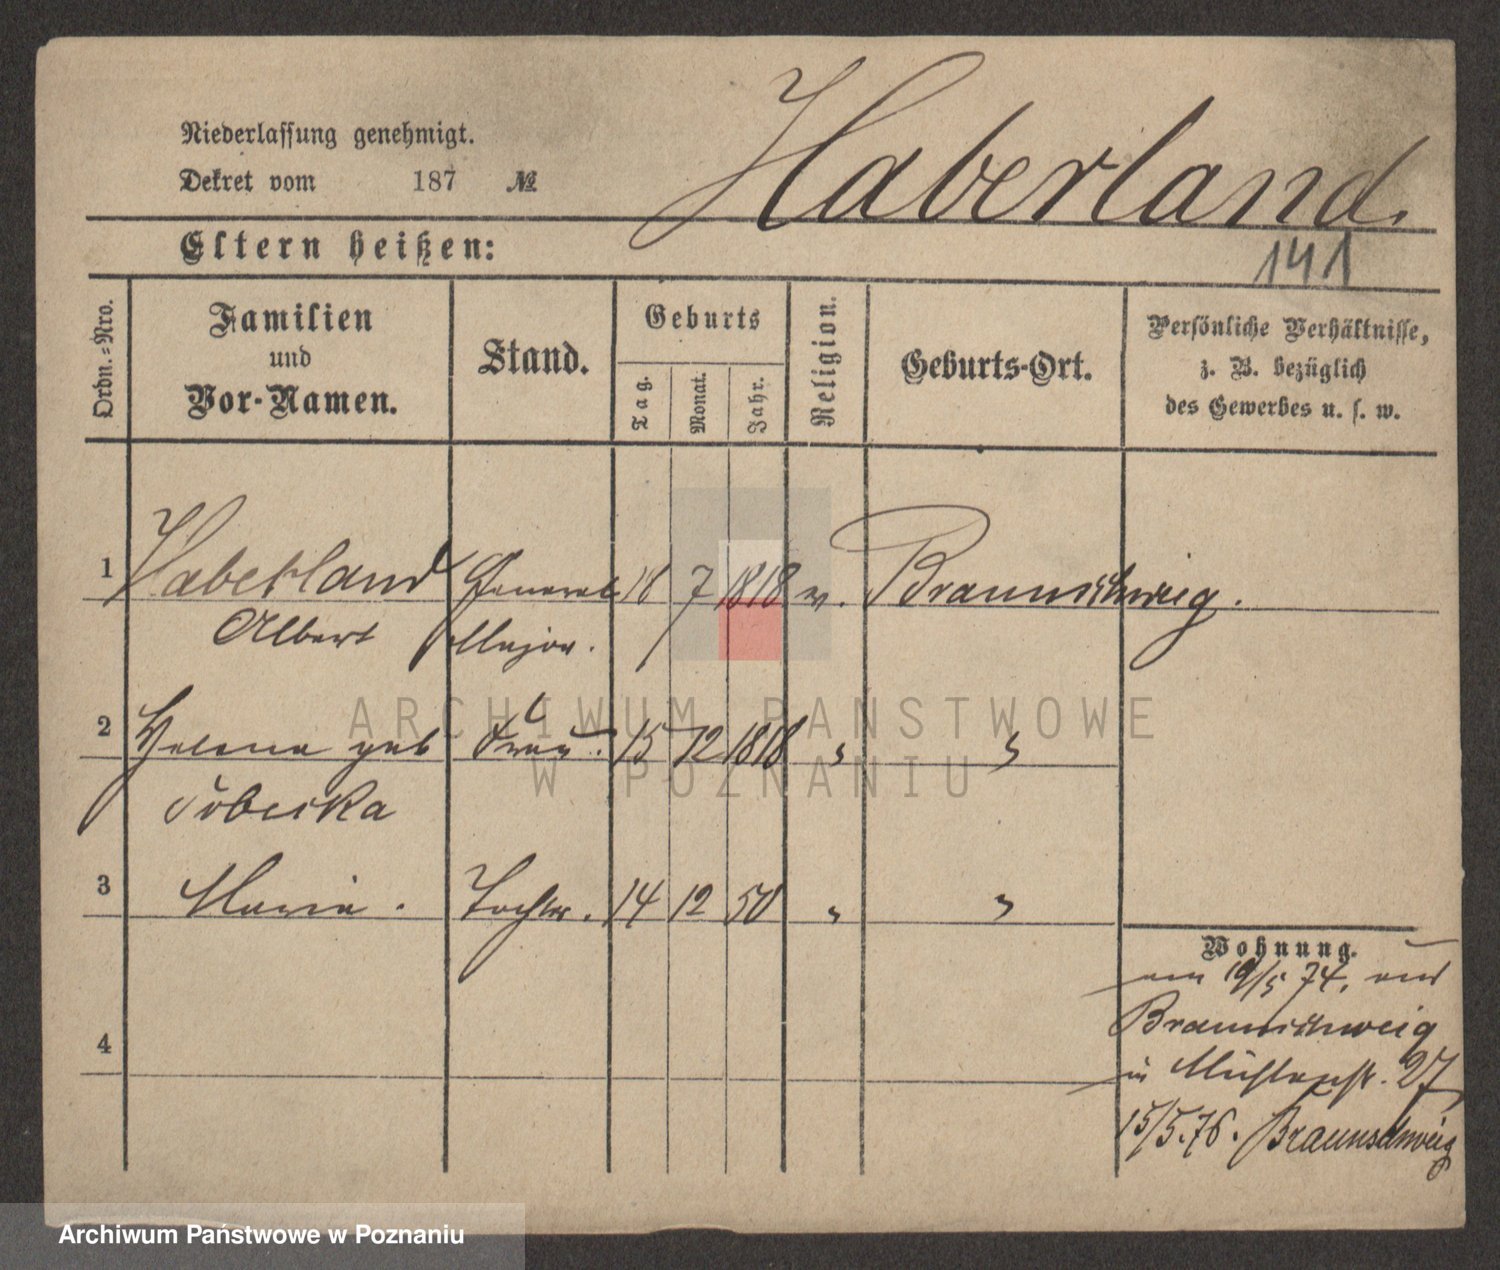 Haberland.
Niederlassung genehmigt.
Dekret vom 187 №
Eltern heißen:
141
Ordn.=Nro.
Familien
und
Vor-Namen.
Stand.
Geburts
Tag.
Monat.
Jahr.
Religion.
Geburts-Ort.
Persönliche Verhältnisse,
z. B. bezüglich
des Gewerbes u. s. w.
1 Haberland General 18 7 1818 Braunschweig.
Albert Major.
2 Helena geb Frau. 15 12 1818 " "
3 Maria. Tochter. 14 12 50 " "
Wohnung.
am 19/5 74. aus
Braunschweig
in Mühlenstr. 27
4
15/5.76. Braunschweig
ARCHIWUM PAŃSTWOWE
W POZNANIU
Archiwum Państwowe w Poznaniu